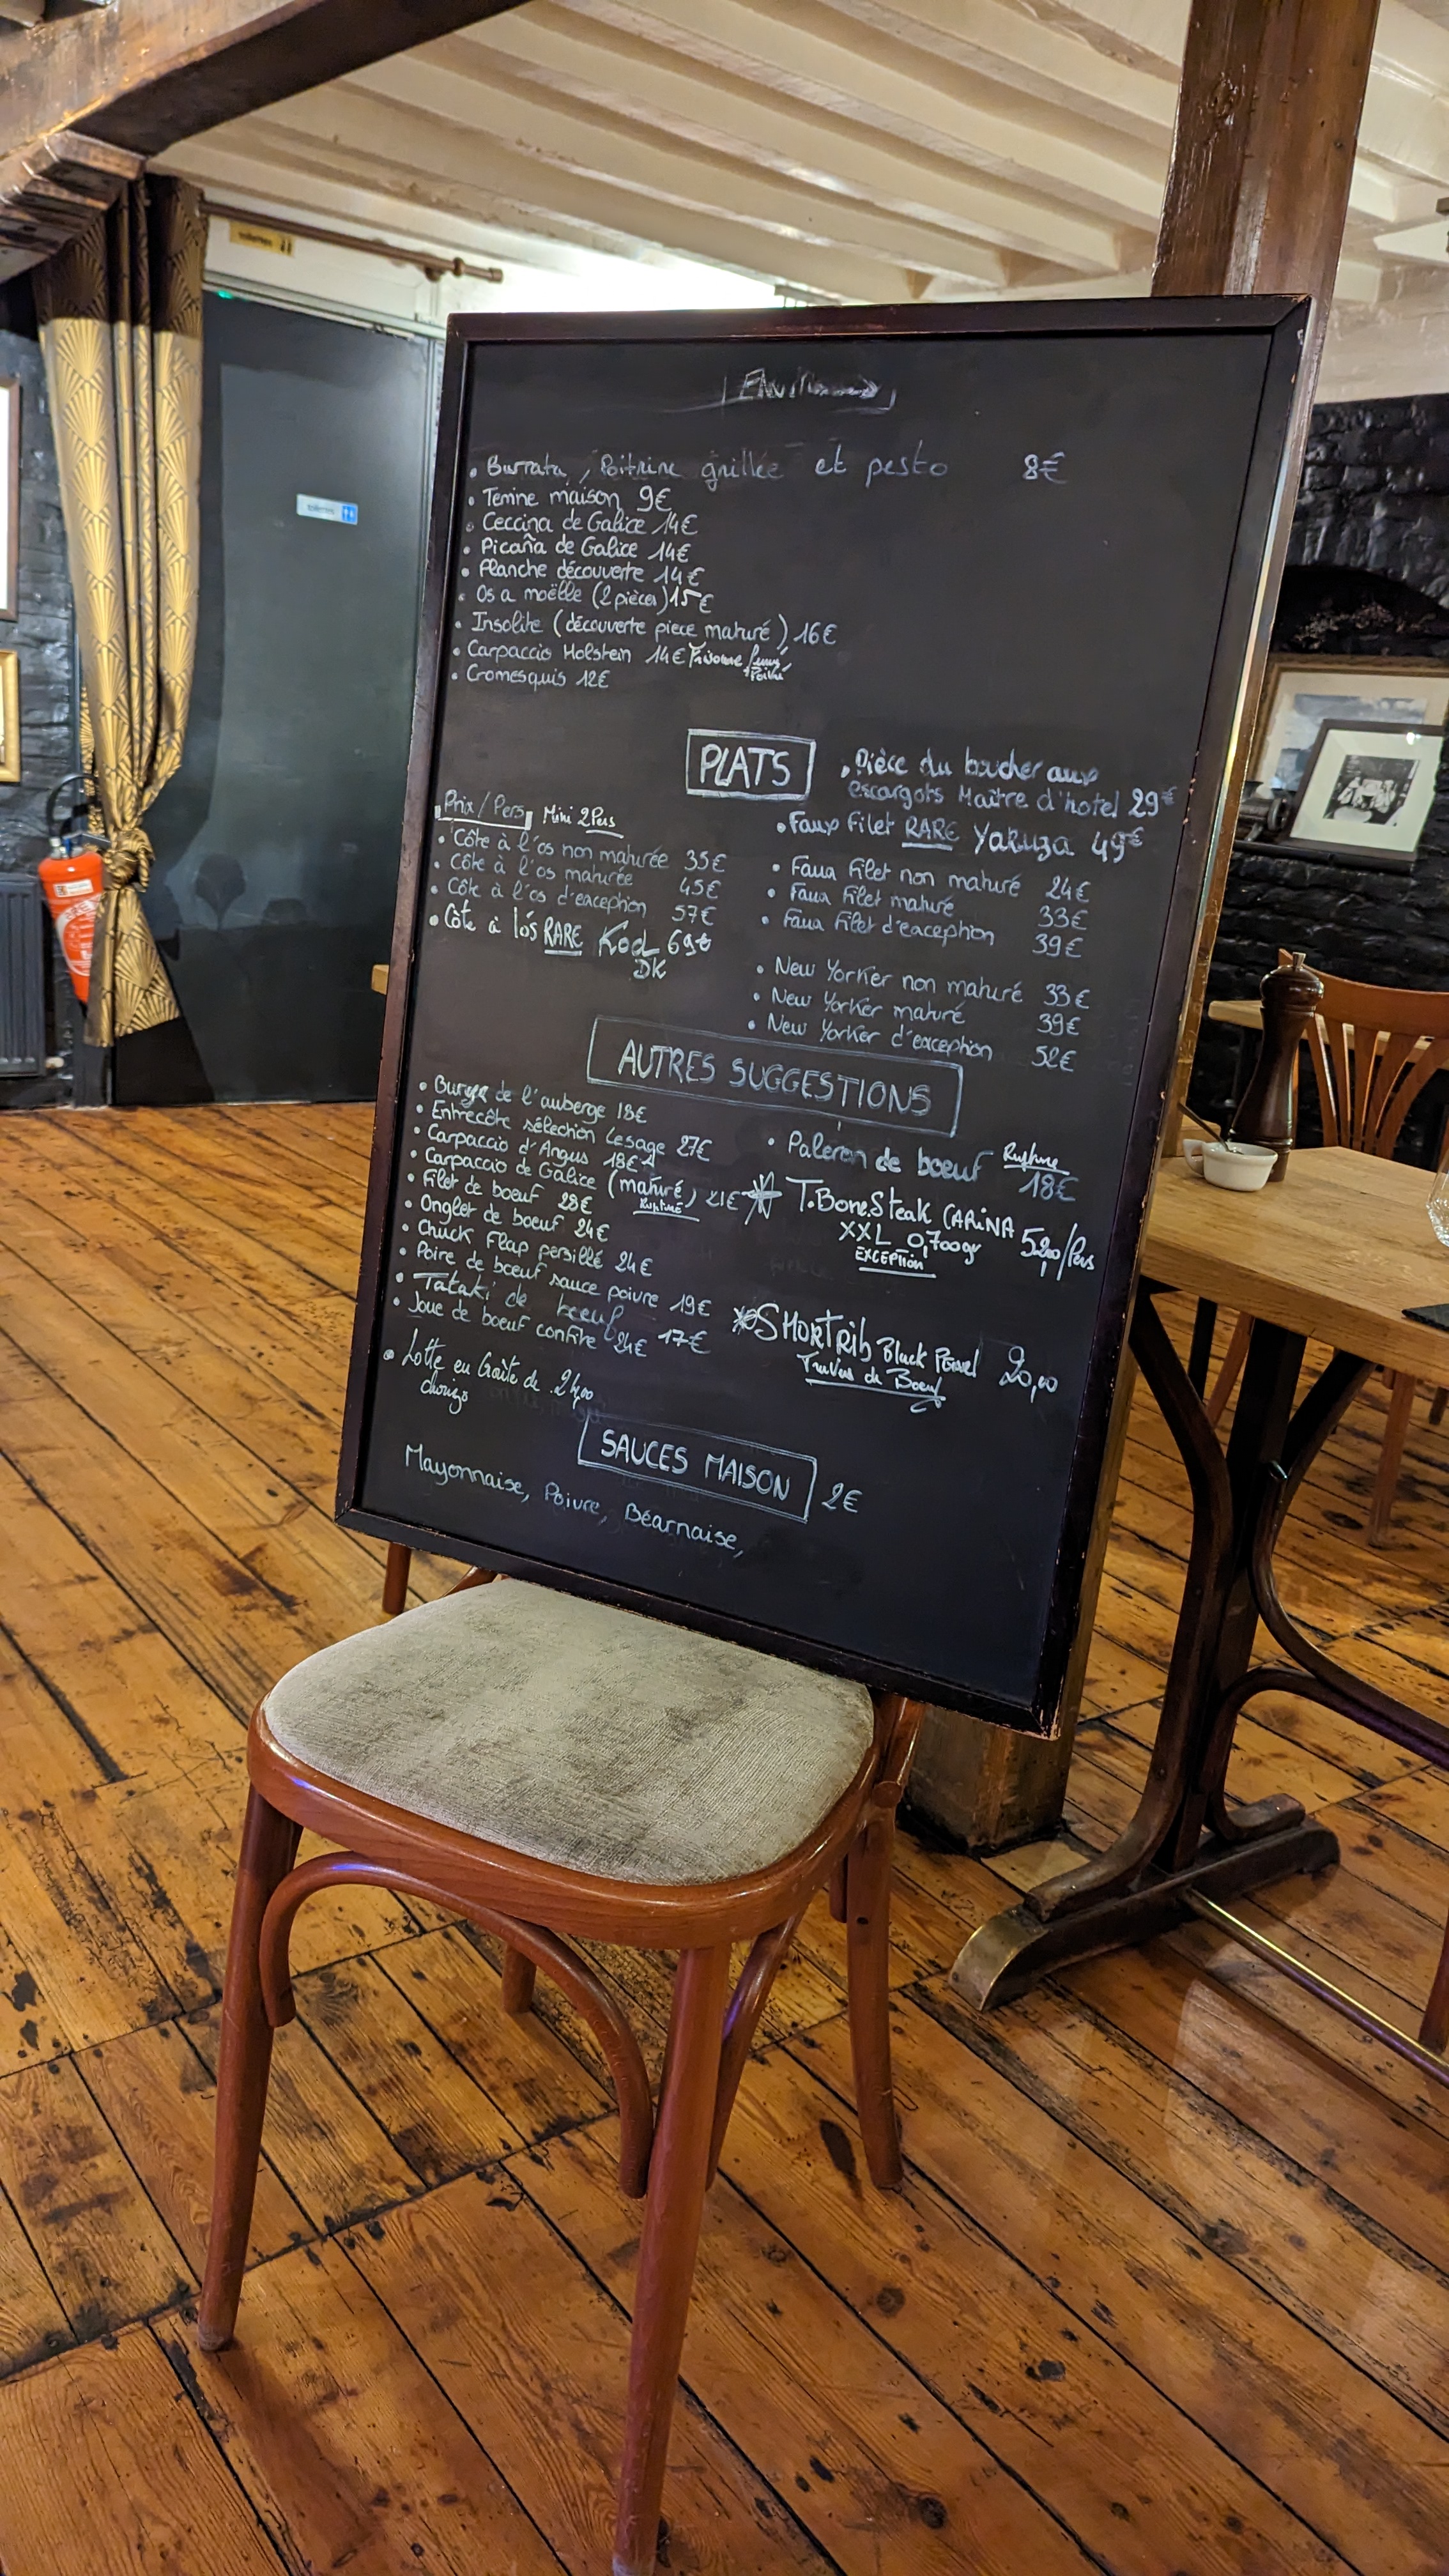 toilettes
toilettes
• Burrata, Poitrine grillée et pesto 8€
• Terrine maison 9€
• Ceccina de Galice 14€
• Picaña de Galice 14€
• Planche découverte 14€
• Os a moëlle (2 pièces) 15€
• Insolite (découverte piece maturé) 16€
• Carpaccio Holstein 14€
• Cromesquis 12€
PLATS
• Pièce du boucher aux
escargots Maître d'hotel 29€
• Faux Filet RARE Yakuza 49€
Prix/Pers Mini 2Pers
• Côte à l'os non maturée 35€
• Côte à l'os maturée 45€
• Côte à l'os d'exception 57€
• Côte à l'ós RARE 69€
DK
• Faux Filet non maturé 24€
• Faux Filet maturé 33€
• Faux Filet d'exception 39€
• New Yorker non maturé 33€
• New Yorker maturé 39€
• New Yorker d'exception 52€
AUTRES SUGGESTIONS
• Burger de l'auberge 18€
• Entrecôte sélection Lesage 27€
• Carpaccio d'Angus 18€
• Carpaccio de Galice (maturé) 21€
Rupture
• Filet de boeuf 28€
• Onglet de boeuf 24€
• Chuck Flap persillé 24€
• Poire de boeuf sauce poivre 19€
• Tataki de boeuf 17€
• Joue de boeuf confite 24€
• Lotte en Croûte de 24,00
chorizo
• Paleron de boeuf Rupture
18€
T.Bone.Steak CARINA
XXL 0,700gr 52,00/Pers
EXCEPTION
SHORTRib Black PEARL 20,00
Travers de Boeuf
SAUCES MAISON 2€
Mayonnaise, Poivre, Béarnaise,